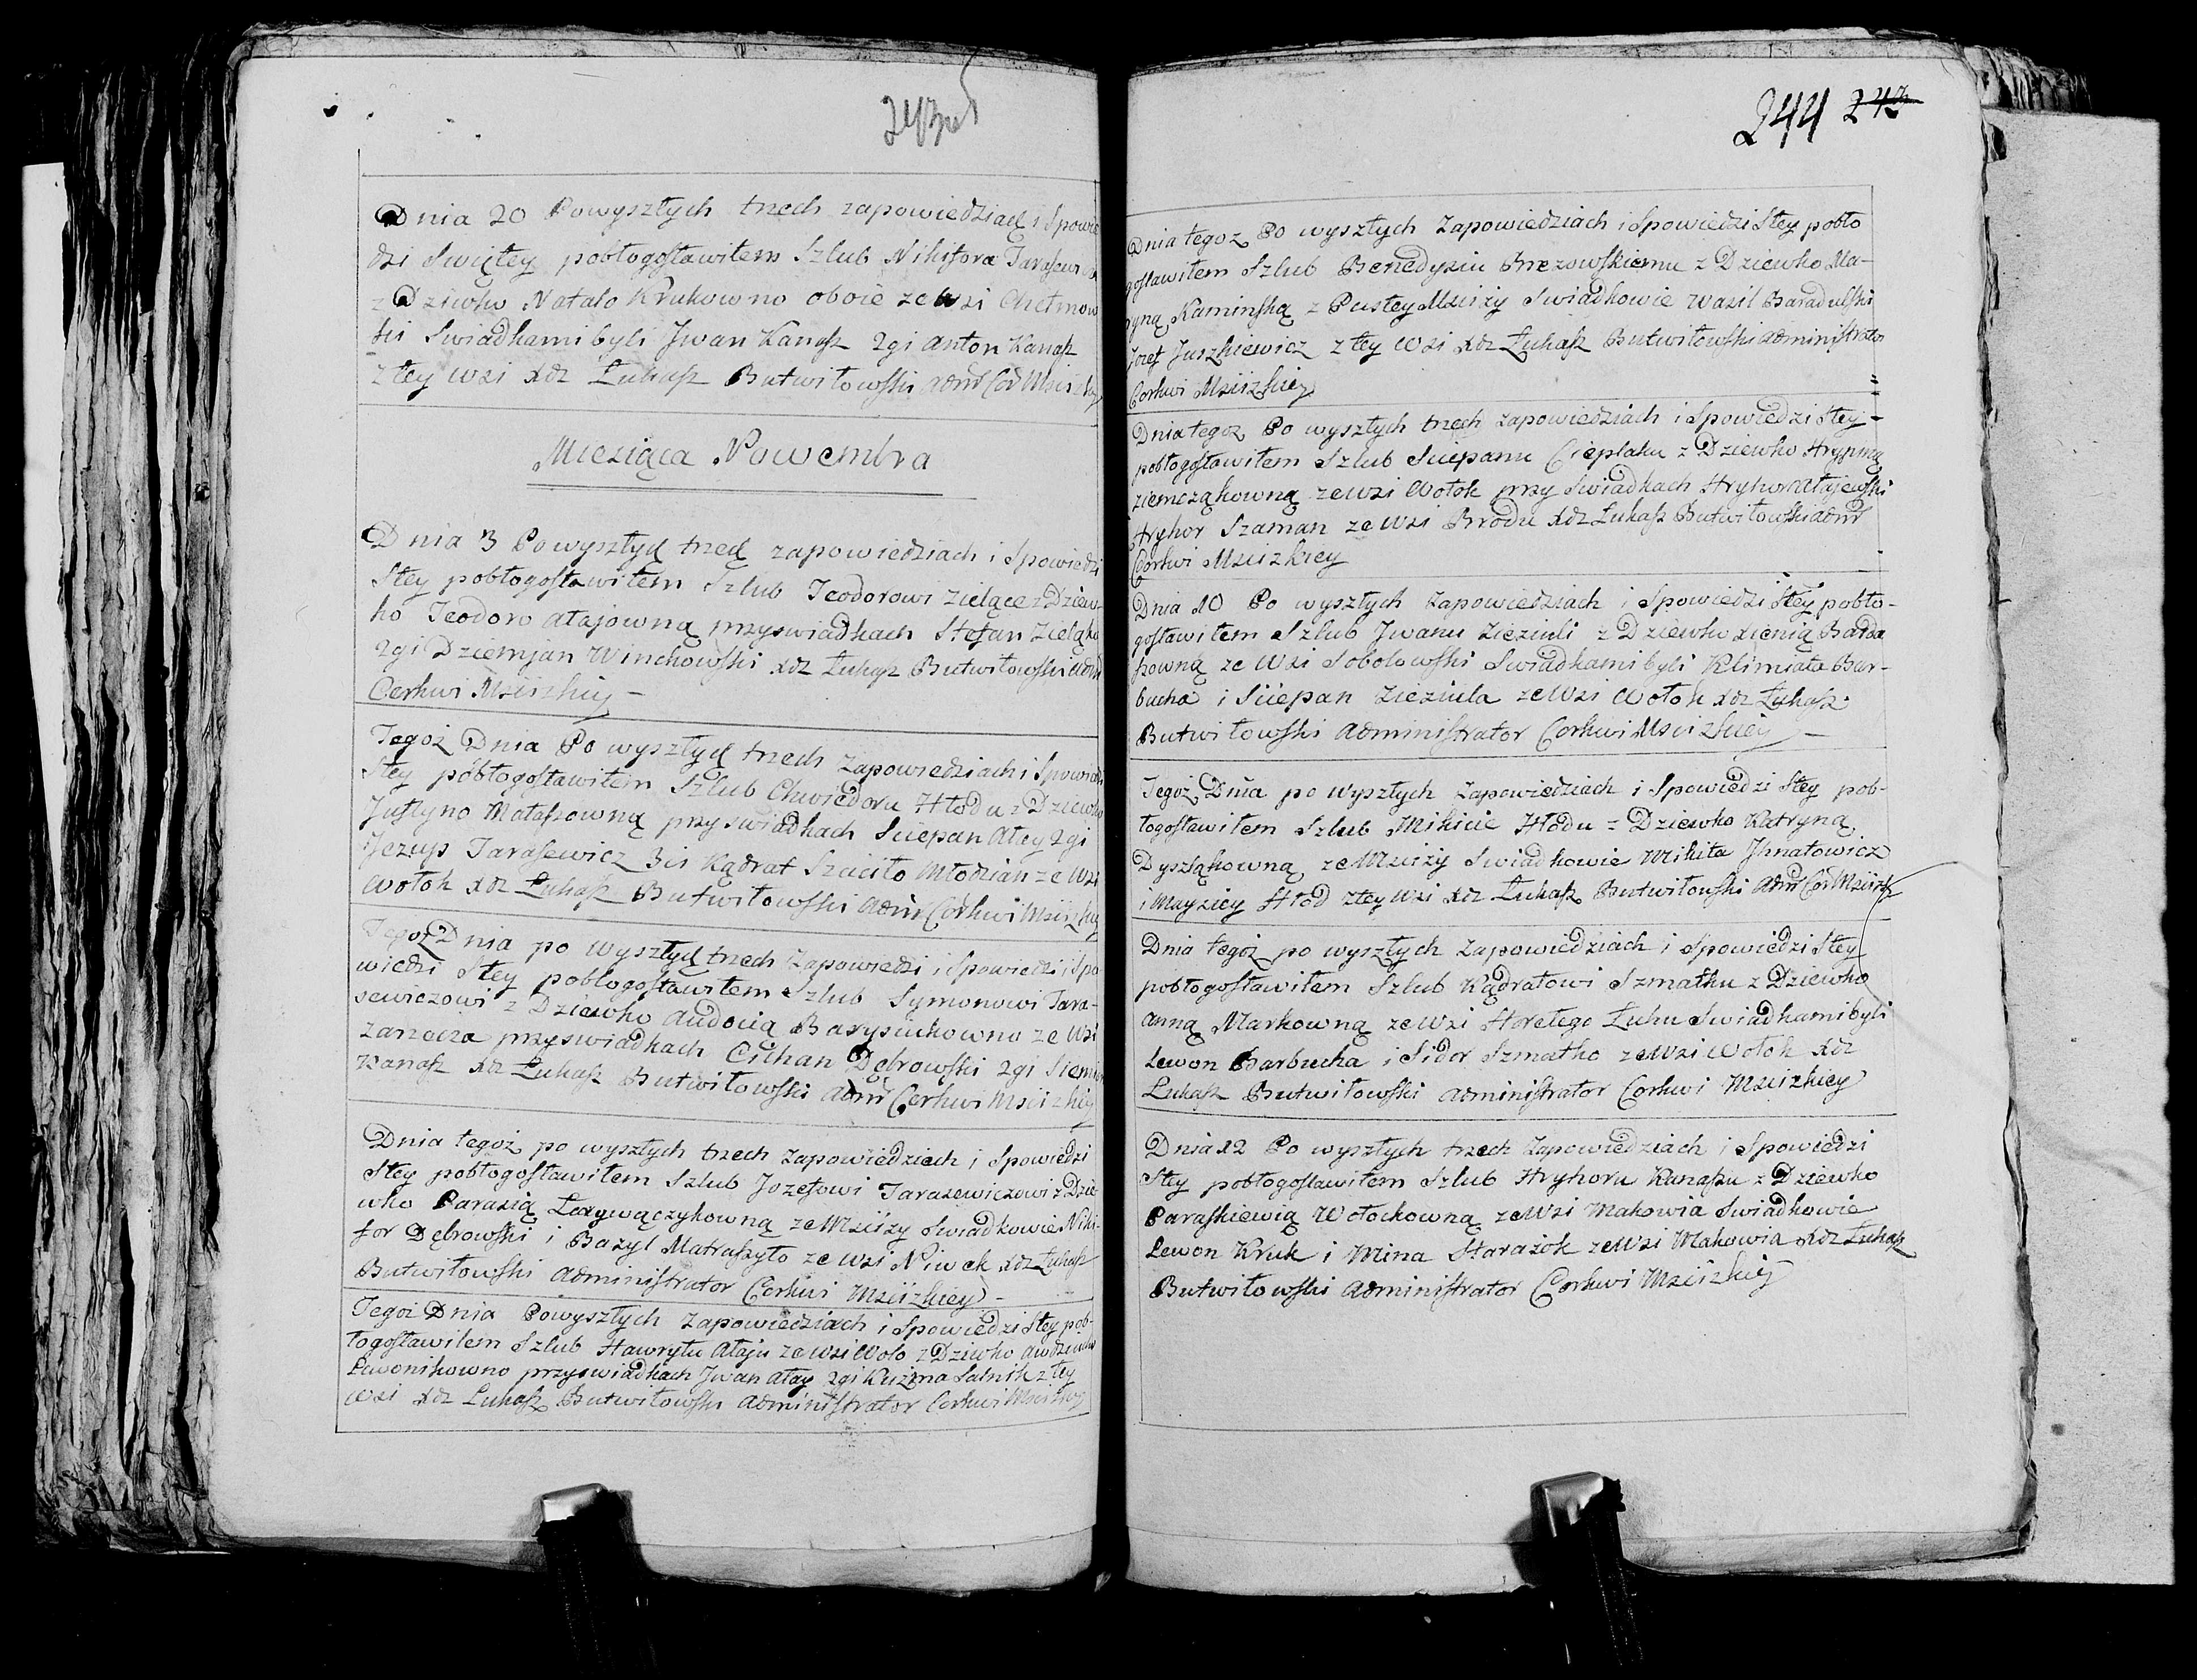 243
Dnia 20 Powyszłych trzech zapowiedziach i Spowie
dzi Swiętey pobłogosławiłem Szlub Nikifora Tarasewi
z Dziewko Natalo Krukowno oboie ze wsi Chełmow
ski Swiadkami byli Jwan Kanasz 2gi Anton Kanasz
z tey wsi xdz Łukasz Butwiłowski
Miesiąca Nowembra
Dnia 3 Powyszłych trzech zapowiedziach i Spowiedzi
Stey pobłogosławiłem Szlub Teodorowi Zielące z Dziew-
ko Teodoro Ałajowną przyswiadkach Stefan Zieląko
2gi Dziemjan Winchowski xdz Łukasz Butwiłowski Adm
Cerkwi Msciżkiey –
Tegoż Dnia Po wyszłych trzech Zapowiedziach i Spowiedzi
Stey pobłogosławiłem Szlub Chwiedoru Hłodu z Dziewko
Justyno Matasowną przy swiadkach Sciepan Ałay 2gi
Jezup Tarasewicz 3is Kądrat Szcićiło Młodzian ze Wsi
Wołok xdz Łukasz Butwiłowski Adm Cerkwi Msciżkiey
Tegoż Dnia po Wyszłych trzech Zapowiedzi i Spowiedzi i Spo
wiedzi Stey pobłogosławiłem Szlub Symonowi Tara-
sewiczowi z Dziewko Audocią Barysiukowno ze Wsi
Zarzecza przyswiadkach Cichan Dębrowski 2gi Siemion
Kanasz xdz Łukasz Butwiłowski Adm Cerkwi Msciżkiey
Dnia tegoż po wyszłych trzech Zapowiedziach i Spowiedzi
Stey pobłogosławiłem Szlub Jozefowi Tarasewiczowi z Dzie
wko Parasią Ławywączykowną ze Msciży Swiadkowie Niki-
for Dębrowski i Bazyl Matraszyło ze wsi Niwek xdz Łukasz
Butwiłowski Administrator Cerkwi Msciżkiey –
Tegoż Dnia Powyszłych Zapowiedziach i Spowiedzi Stey pob-
łogosławiłem Szlub Hawryłu Ałaju ze wsi Woło z Dziewko
Ławonikowno przyswiadkach Jwan Ałay 2gi Kuźma Salnik z tey
wsi xdz Łukasz Butwiłowski Administrator Cerkwi Msciżkiey
244 242
Dnia tegoż Po wyszłych Zapowiedziach i Spowiedzi Stey pobło
gosławiłem Szlub Benedyziu Brezowskiemu z Dziewko Ma-
ryną Kaminską z Pustey Msciży Swiadkowie Wasil Baradulski
Jozef Juszkiewicz z tey Wsi xdz Łukasz Butwiłowski Administrator
Cerkwi Msciżkiey
Dnia tegoż Po wyszłych trzech zapowiedziach i Spowiedzi Stey –
pobłogosławiłem Szlub Sciepanu Cieplaku z Dziewko Hrypiną
Ziemcząkowną ze wsi Wołok przy Swiadkach Hryhor Ałajewski
Hryhor Szaman ze wsi Brodu xdz Łukasz Butwiłowski Adm
Cerkwi Msciżkiey
Dnia 10 Po wyszłych Zapowiedziach i Spowiedzi Stey pobło-
gosławiłem Szlub Jwanu Zieziuli z Dziewko Xienią Barda
szowną ze Wsi Sobolowski Swiadkami byli Klimiata Bar-
bucha i Sciepan Zieziula ze Wsi Wołok xdz Łukasz
Butwiłowski Administrator Cerkwi Msciżkiey –
Tegoż Dnia po Wyszłych Zapowiedziach i Spowiedzi Stey pob-
łogosławiłem Szlub Mikicie Hłodu z Dziewko Katryną
Dyszląkowną ze Msciży Swiadkowie Mikita Jhnatowicz
i Mayziey Hłod z tey Wsi xdz Łukasz Butwiłowski Adm Cer Msciżk
Dnia tegoż po wyszłych Zapowiedziach i Spowiedzi Stey
pobłogosławiłem Szlub Kądratowi Szmatku z Dziewko
Anną Markowną ze Wsi Horełego Łuhu Swiadkami byli
Lewon Barbucha i Sidor Szmatko ze Wsi Wołok xdz
Łukasz Butwiłowski Administrator Cerkwi Msciżkiey
Dnia 12 Po wyszłych trzech Zapowiedziach i Spowiedzi
Stey pobłogosławiłem Szlub Hryhoru Kanaszu z Dziewko
Paraskiewią Wołockowną ze Wsi Makowia Swiadkowie
Lewon Kruk i Mina Starażok ze Wsi Makowia xdz Łukasz
Butwiłowski Administrator Cerkwi Msciżkiey